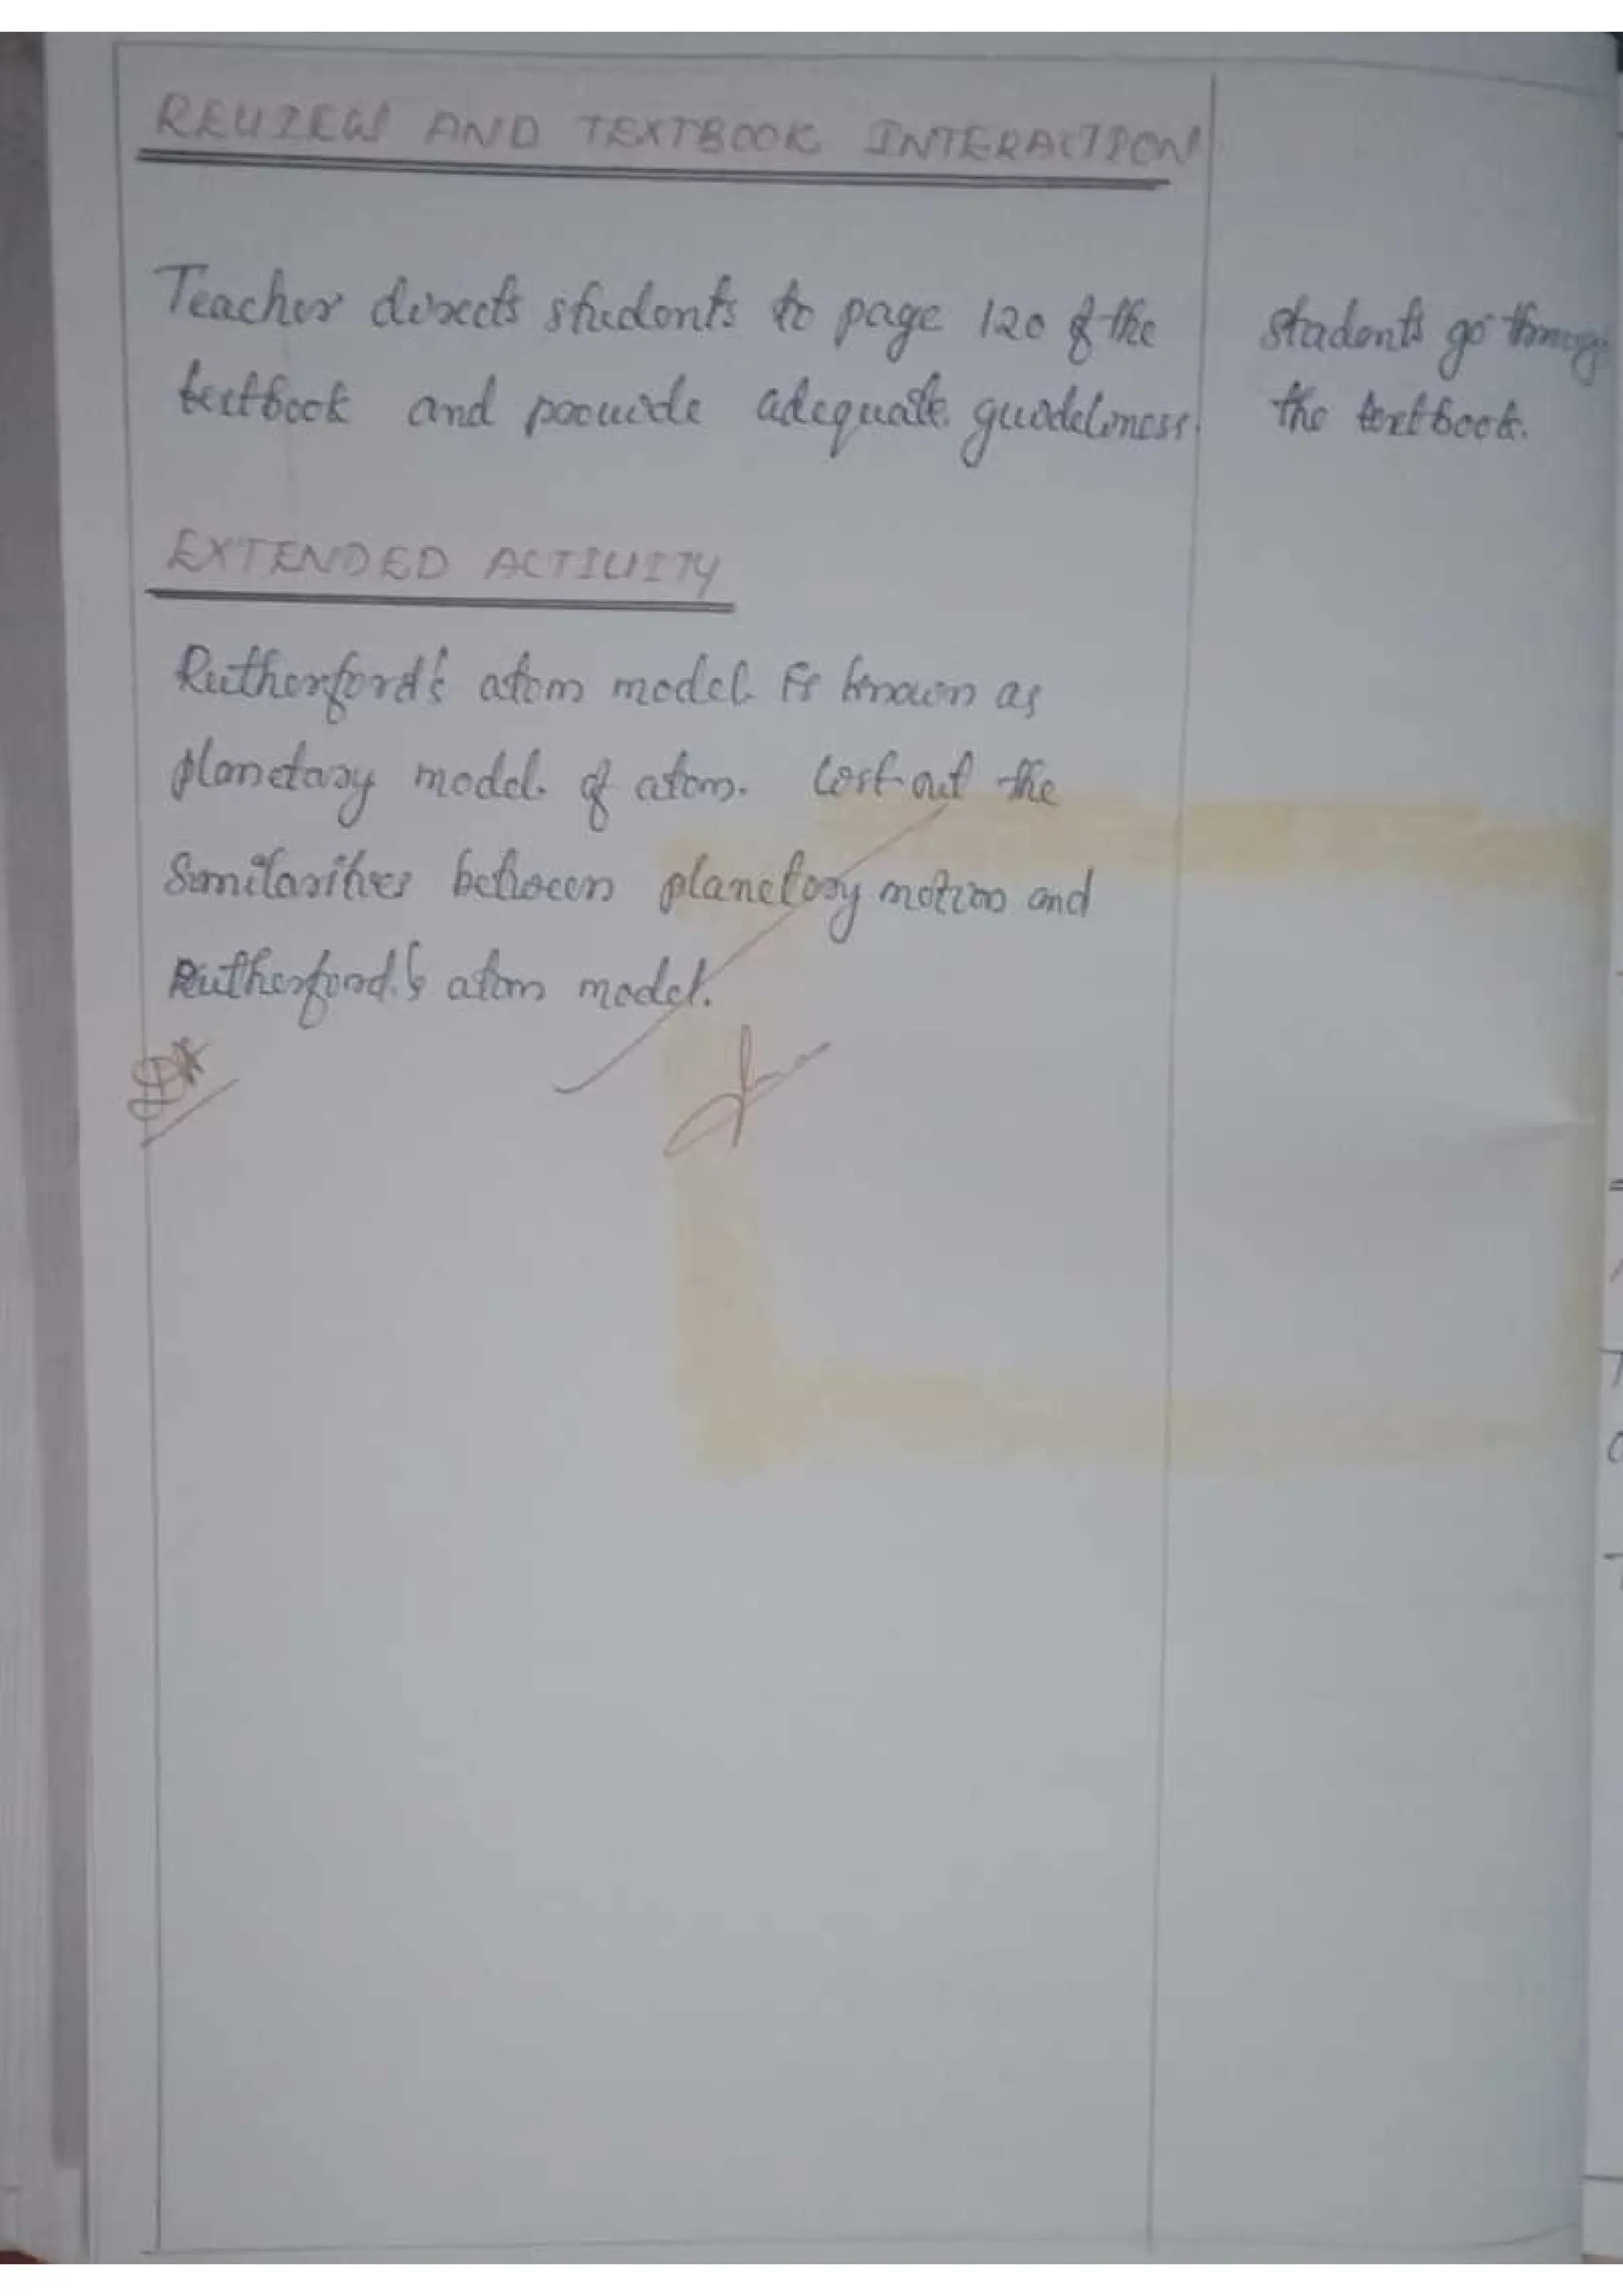 REVIEW AND TEXTBOOK INTERACTION
Teacher directs students to page 120 of the
textbook and provide adequate guideliness.
students go through
the textbook.
EXTENDED ACTIVITY
Rutherford's atom model is known as
planetary model of atom. List out the
Similarities between planetary motion and
Rutherford's atom model.